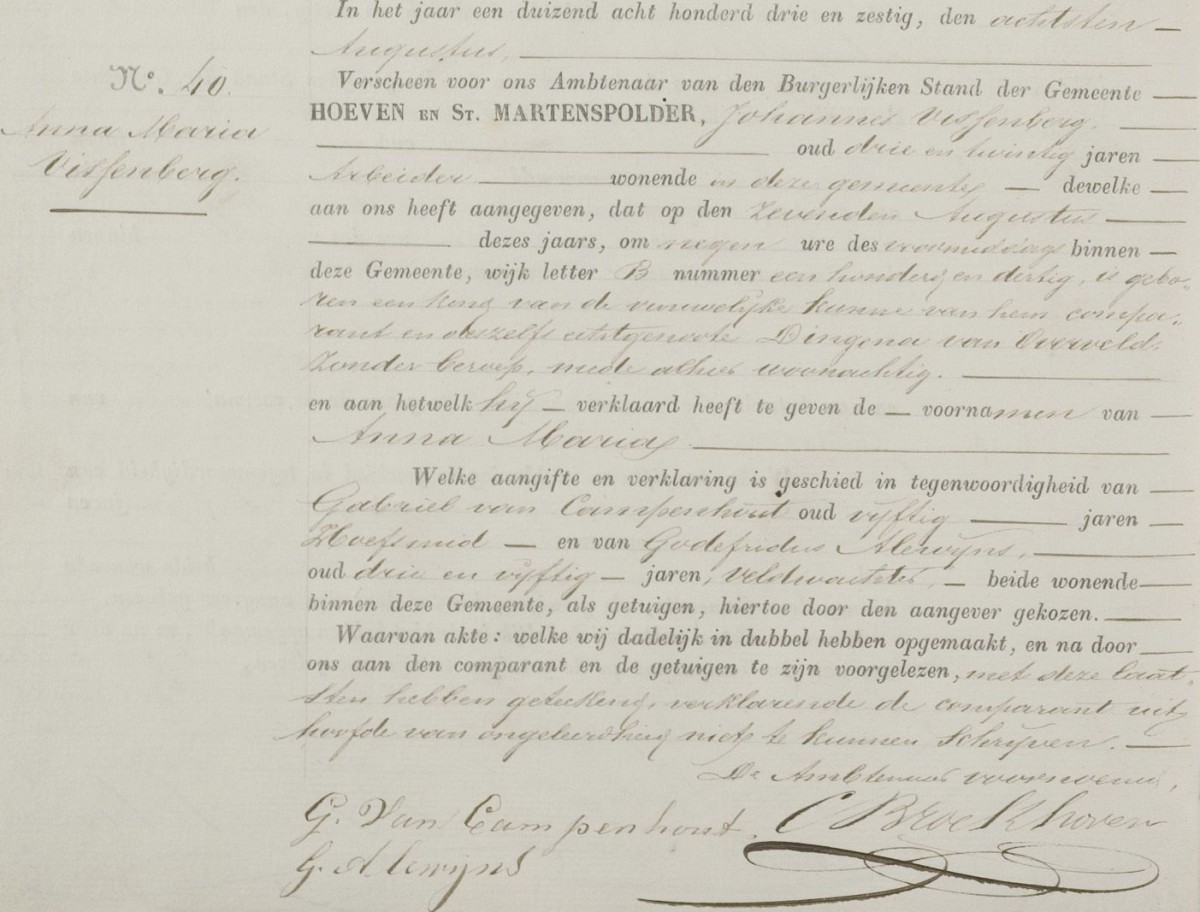 In het jaar een duizend acht honderd drie en zestig, den achtsten
Augustus,
N.º 40.
Anna Maria
Vissenberg.
Verscheen voor ons Ambtenaar van den Burgerlijken Stand der Gemeente
HOEVEN EN ST. MARTENSPOLDER, Johannes Vissenberg.
oud drie en twintig jaren
Arbeider wonende in deze gemeente, dewelke
aan ons heeft aangegeven, dat op den zevenden Augustus
dezes jaars, om negen ure des voormiddags binnen
deze Gemeente, wijk letter B nummer een honderd en dertig, is gebo-
ren een kind van de vrouwelijke kunne van hem compa-
rant en deszelfs echtgenoote Dingena van Overveld
zonder beroep, mede alhier woonachtig.
en aan hetwelk hij verklaard heeft te geven de voornamen van
Anna Maria
Welke aangifte en verklaring is geschied in tegenwoordigheid van
Gabriel van Campenhout oud vijftig jaren
Hoefsmid en van Godefridus Alewijns,
oud drie en vijftig jaren, veldwachter, beide wonende
binnen deze Gemeente, als getuigen, hiertoe door den aangever gekozen.
Waarvan akte: welke wij dadelijk in dubbel hebben opgemaakt, en na door
ons aan den comparant en de getuigen te zijn voorgelezen, met deze laat-
sten hebben geteekend, verklarende de comparant uit
hoofde van ongeleerdheid niet te kunnen schrijven.
De Ambtenaar voornoemd,
G. Van Campenhout. C Broekhoven
G. Alewijns